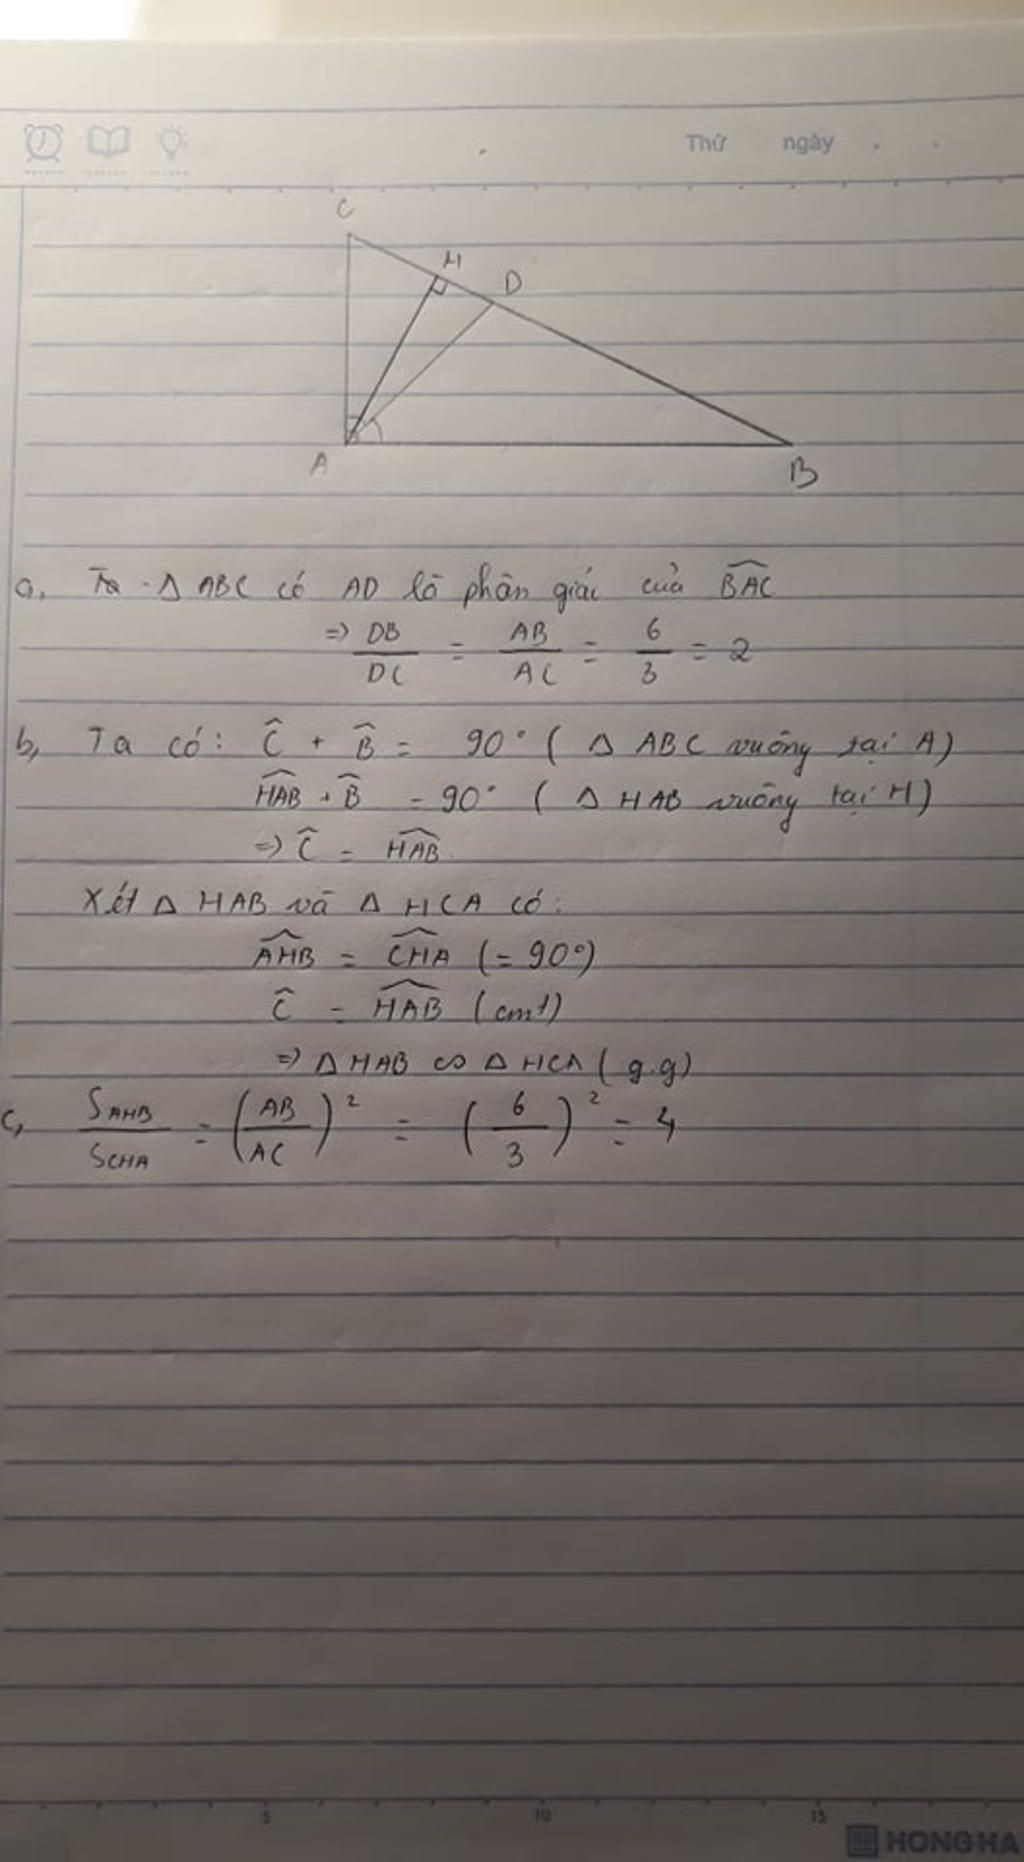 Thứ ngày
C
H
D
A
B
a, Ta · Δ ABC có AD là phân giác của \widehat{BAC}
=> DB/DC = AB/AC = 6/3 = 2
b, Ta có: \widehat{C} + \widehat{B} = 90° ( Δ ABC vuông tại A)
\widehat{HAB} + \widehat{B} = 90° ( Δ HAB vuông tại H)
=> \widehat{C} = \widehat{HAB}.
Xét Δ HAB và Δ HCA có:
\widehat{AHB} = \widehat{CHA} (= 90°)
\widehat{C} = \widehat{HAB} (cmt)
=> Δ HAB ∽ Δ HCA ( g.g)
c, S_{AHB}/S_{CHA} = (AB/AC)² = (6/3)² = 4
5 10 15
HONG HA